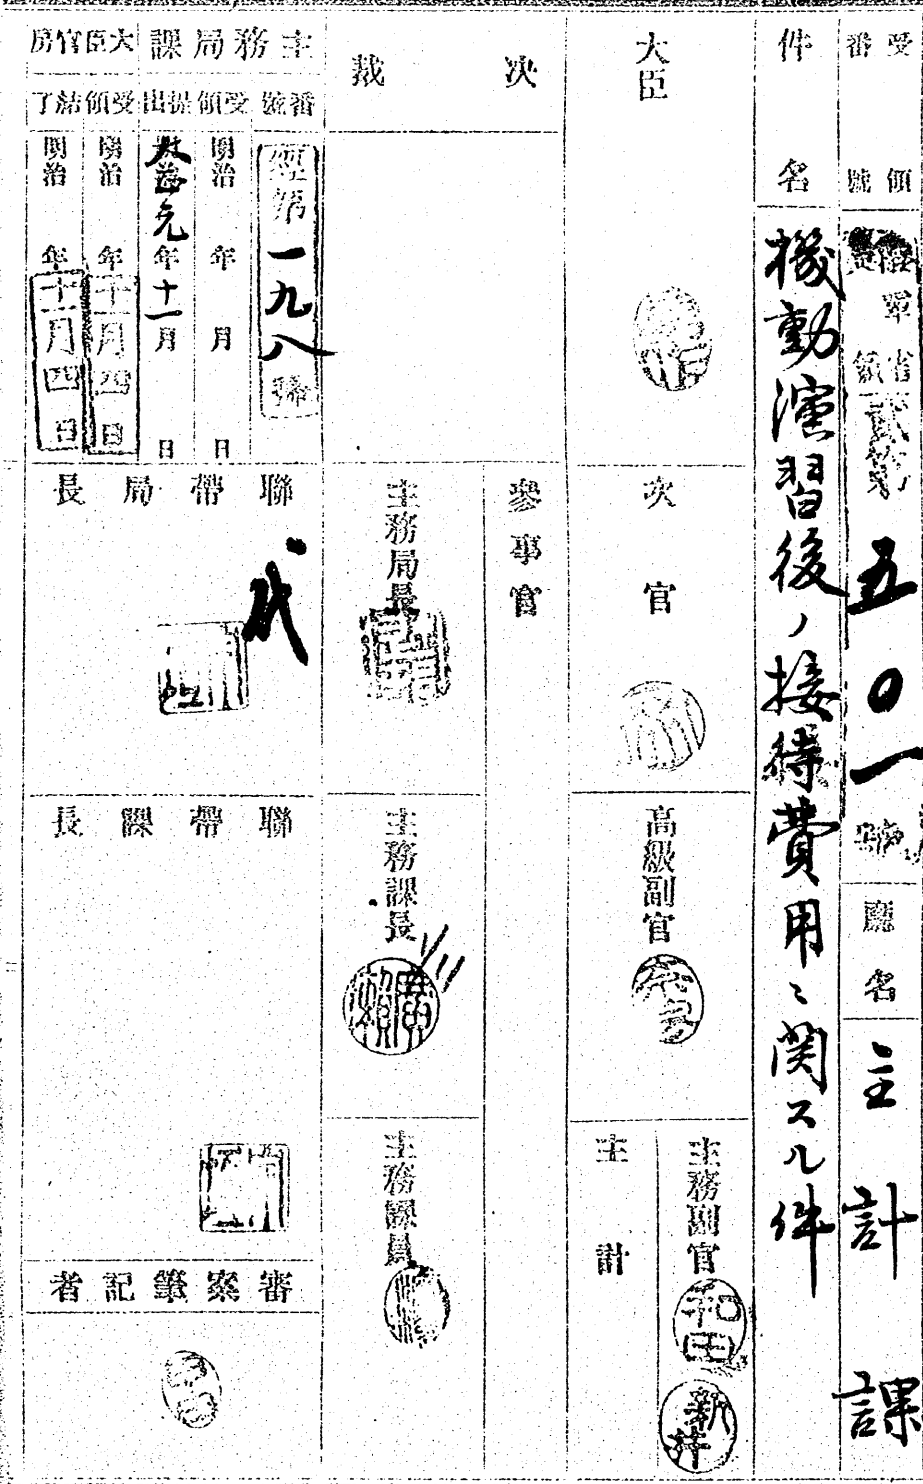 受領番號
陸軍省受領
貳第五〇一號
廳名
主計課
件名
機動演習後ノ接待費用ニ関スル件
大臣
次官
高級副官
主務副官
和田
新井
主計
決裁
參事官
主務局長
主務課長
廣瀬
主務課員
主務局課
番號
經第一九八號
受領
明治 年 月 日
提出
大正元年十一月 日
大臣官房
受領
明治 年十一月四日
結了
明治 年十一月四日
聯帶局長
代
聯帶課長
審案筆記者